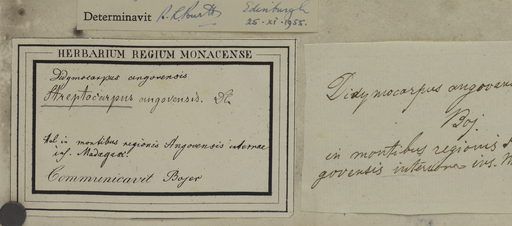 Determinavit Edinburgh
25 - xi - 1955.
HERBARIUM REGIUM MONACENSE
Didymocarpus angovensis
Streptocarpus angovensis.
Hab. in montibus regionis Angovensis internae
ins. Madagasc.
Communicavit Bojer
Didymocarpus angovan
Boj.
in montibus regionis
govensis internae ins. M